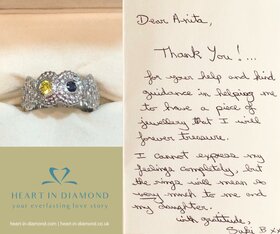 HEART IN DIAMOND
your everlasting love story
heart-in-diamond.com | heart-in-diamond.co.uk
Dear Anita,
Thank You!...
for your help and kind
guidance in helping me
to have a piece of
jewellery that I will
forever treasure.
I cannot express my
feelings completely, but
the rings will mean so
very much to me and
my daughter.
with gratitude,
Suki B xx